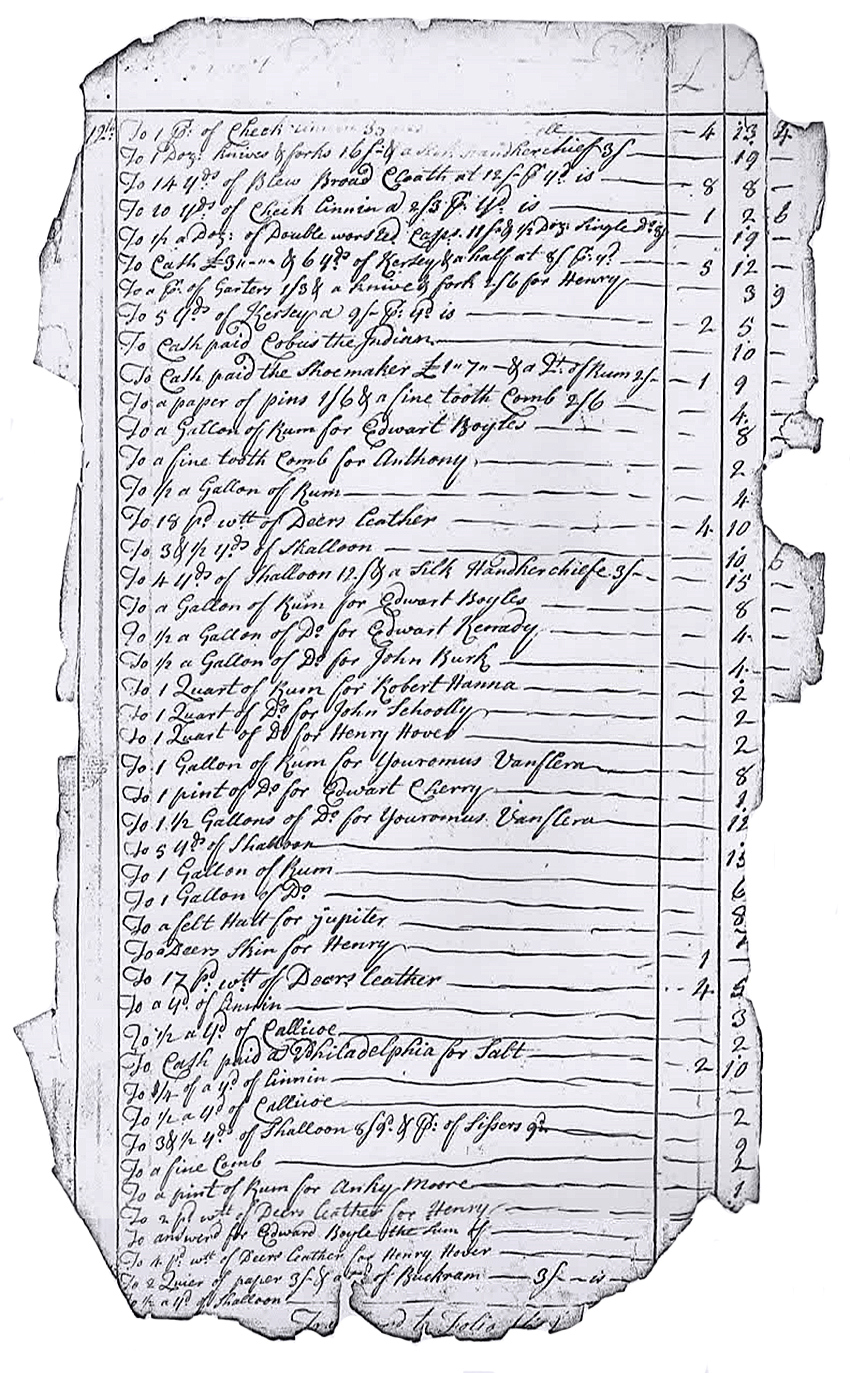 £ S
12th To 1 Pr. of Check linnen 4 13 4
To 1 Doz: Knives & forks 16/ & a silk handkerchief 3/ 19 —
To 14 Yds of Blew Broad Cloath at 12/ Pr Yd is 8 8 —
To 10 Yds of Check linnin a 2/3 Pr. Yd. is 1 2 6
To ½ a Doz: of Double worsted Capps 11/ & ½ Doz: Single Do 8/ 19 —
To Cash £3 „ — „ — & 6 Yds of Kersey & a half at 8/ Pr. yd. 5 12 —
To a Pr. of Garters 1/3 & a knive & fork 2/6 for Henry 3 9
To 5 Yds of Kersey a 9/ Pr. Yd is 2 5 —
To Cash paid Cobus the Indian 10 —
To Cash paid the Shoemaker £1 „ 7 „ — & a Qt. of Rum 2/ 1 9 —
To a paper of pins 1/6 & a fine tooth Comb 2/6 4 —
To a Gallon of Rum for Edwart Boyles 8 —
To a fine tooth Comb for Anthony 2
To ½ a Gallon of Rum 4
To 18 pd wtt of Deers leather 4 10
To 3 & ½ Yds of Shalloon 10 6
To 4 Yds of Shalloon 12/ & a Silk Handkerchiefe 3/ 15 —
To a Gallon of Rum for Edwart Boyles 8 —
To ½ a Gallon of Do for Edwart Kenady 4 —
To ½ a Gallon of Do for John Burk 4 —
To 1 Quart of Rum for Robert Hanna 2 —
To 1 Quart of Do for John Schoolly 2
To 1 Quart of Do for Henry Hover 2
To 1 Gallon of Rum for Youromus Vanflera 8
To 1 pint of Do for Edwart Cherry 1
To 1 ½ Gallons of Do for Youromus Vanflera 12
To 5 Yds of Shalloon 15
To 1 Gallon of Rum
To 1 Gallon of Do
To a felt Hatt for Jupiter
To a Deers Skin for Henry 1
To 17 pd wtt of Deers leather 4 5
To a Yd. of Linnin 3
To ½ a Yd of Callicoe 2
To Cash paid a Philadelphia for Salt 2 10
To ¾ of a yd of linnin
To ½ a Yd of Callicoe 2
To 3 & ½ Yds of Shalloon 8/9d. & Pr: of Sissers 9d 9
To a fine Comb 2
To a pint of Rum for Anky Moore 1
To 2 pd wtt of Deers leather for Henry
To answerd for Edward Boyle the Sum of
To 4 pd wtt of Deers leather for Henry Hover
To 2 Quier of paper 3/ & a Yd of Buckram 3/ — is
To ½ a Yd of Shalloon
to Folio